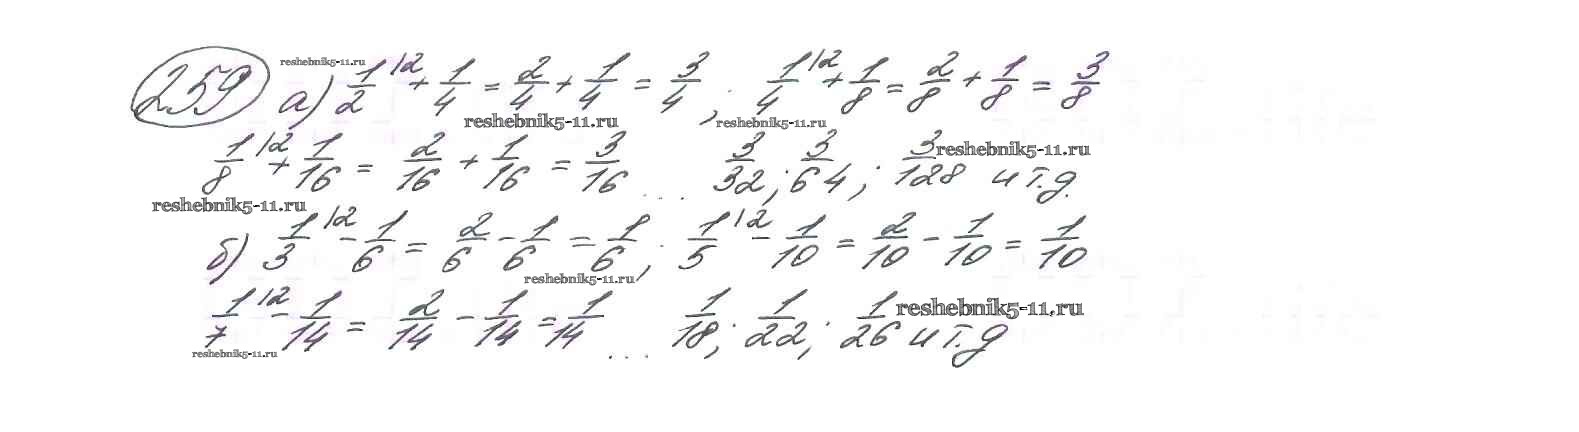 259 а) 1/2 |2 + 1/4 = 2/4 + 1/4 = 3/4 ; 1/4 |2 + 1/8 = 2/8 + 1/8 = 3/8
reshebnik5-11.ru
reshebnik5-11.ru reshebnik5-11.ru
1/8 |2 + 1/16 = 2/16 + 1/16 = 3/16 .... 3/32 ; 3/64 ; 3/128 и т.д.
reshebnik5-11.ru
reshebnik5-11.ru
б) 1/3 |2 - 1/6 = 2/6 - 1/6 = 1/6 ; 1/5 |2 - 1/10 = 2/10 - 1/10 = 1/10
reshebnik5-11.ru
1/7 |2 - 1/14 = 2/14 - 1/14 = 1/14 ... 1/18 ; 1/22 ; 1/26 и т.д
reshebnik5-11.ru
reshebnik5-11.ru